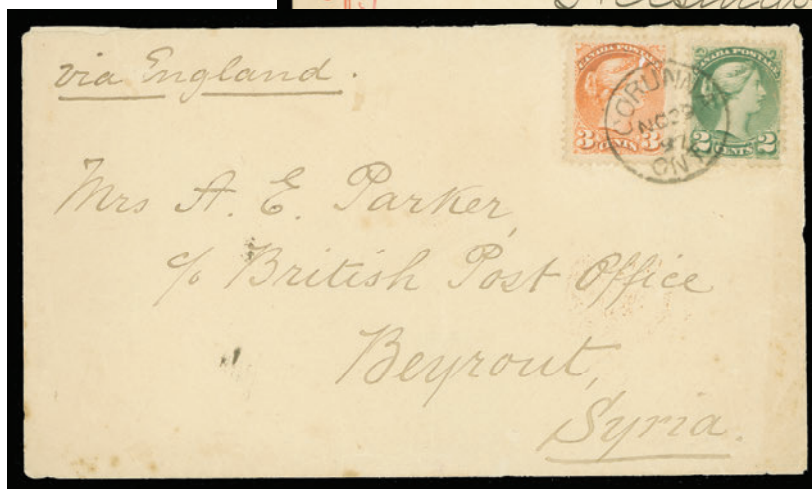 via England.
CANADA POSTAGE
3 CENTS 3
CANADA POSTAGE
2 CENTS 2
CORUNNA
NO 29
97
ONT
Mrs A. E. Parker,
c/o British Post Office
Beyrout,
Syria.